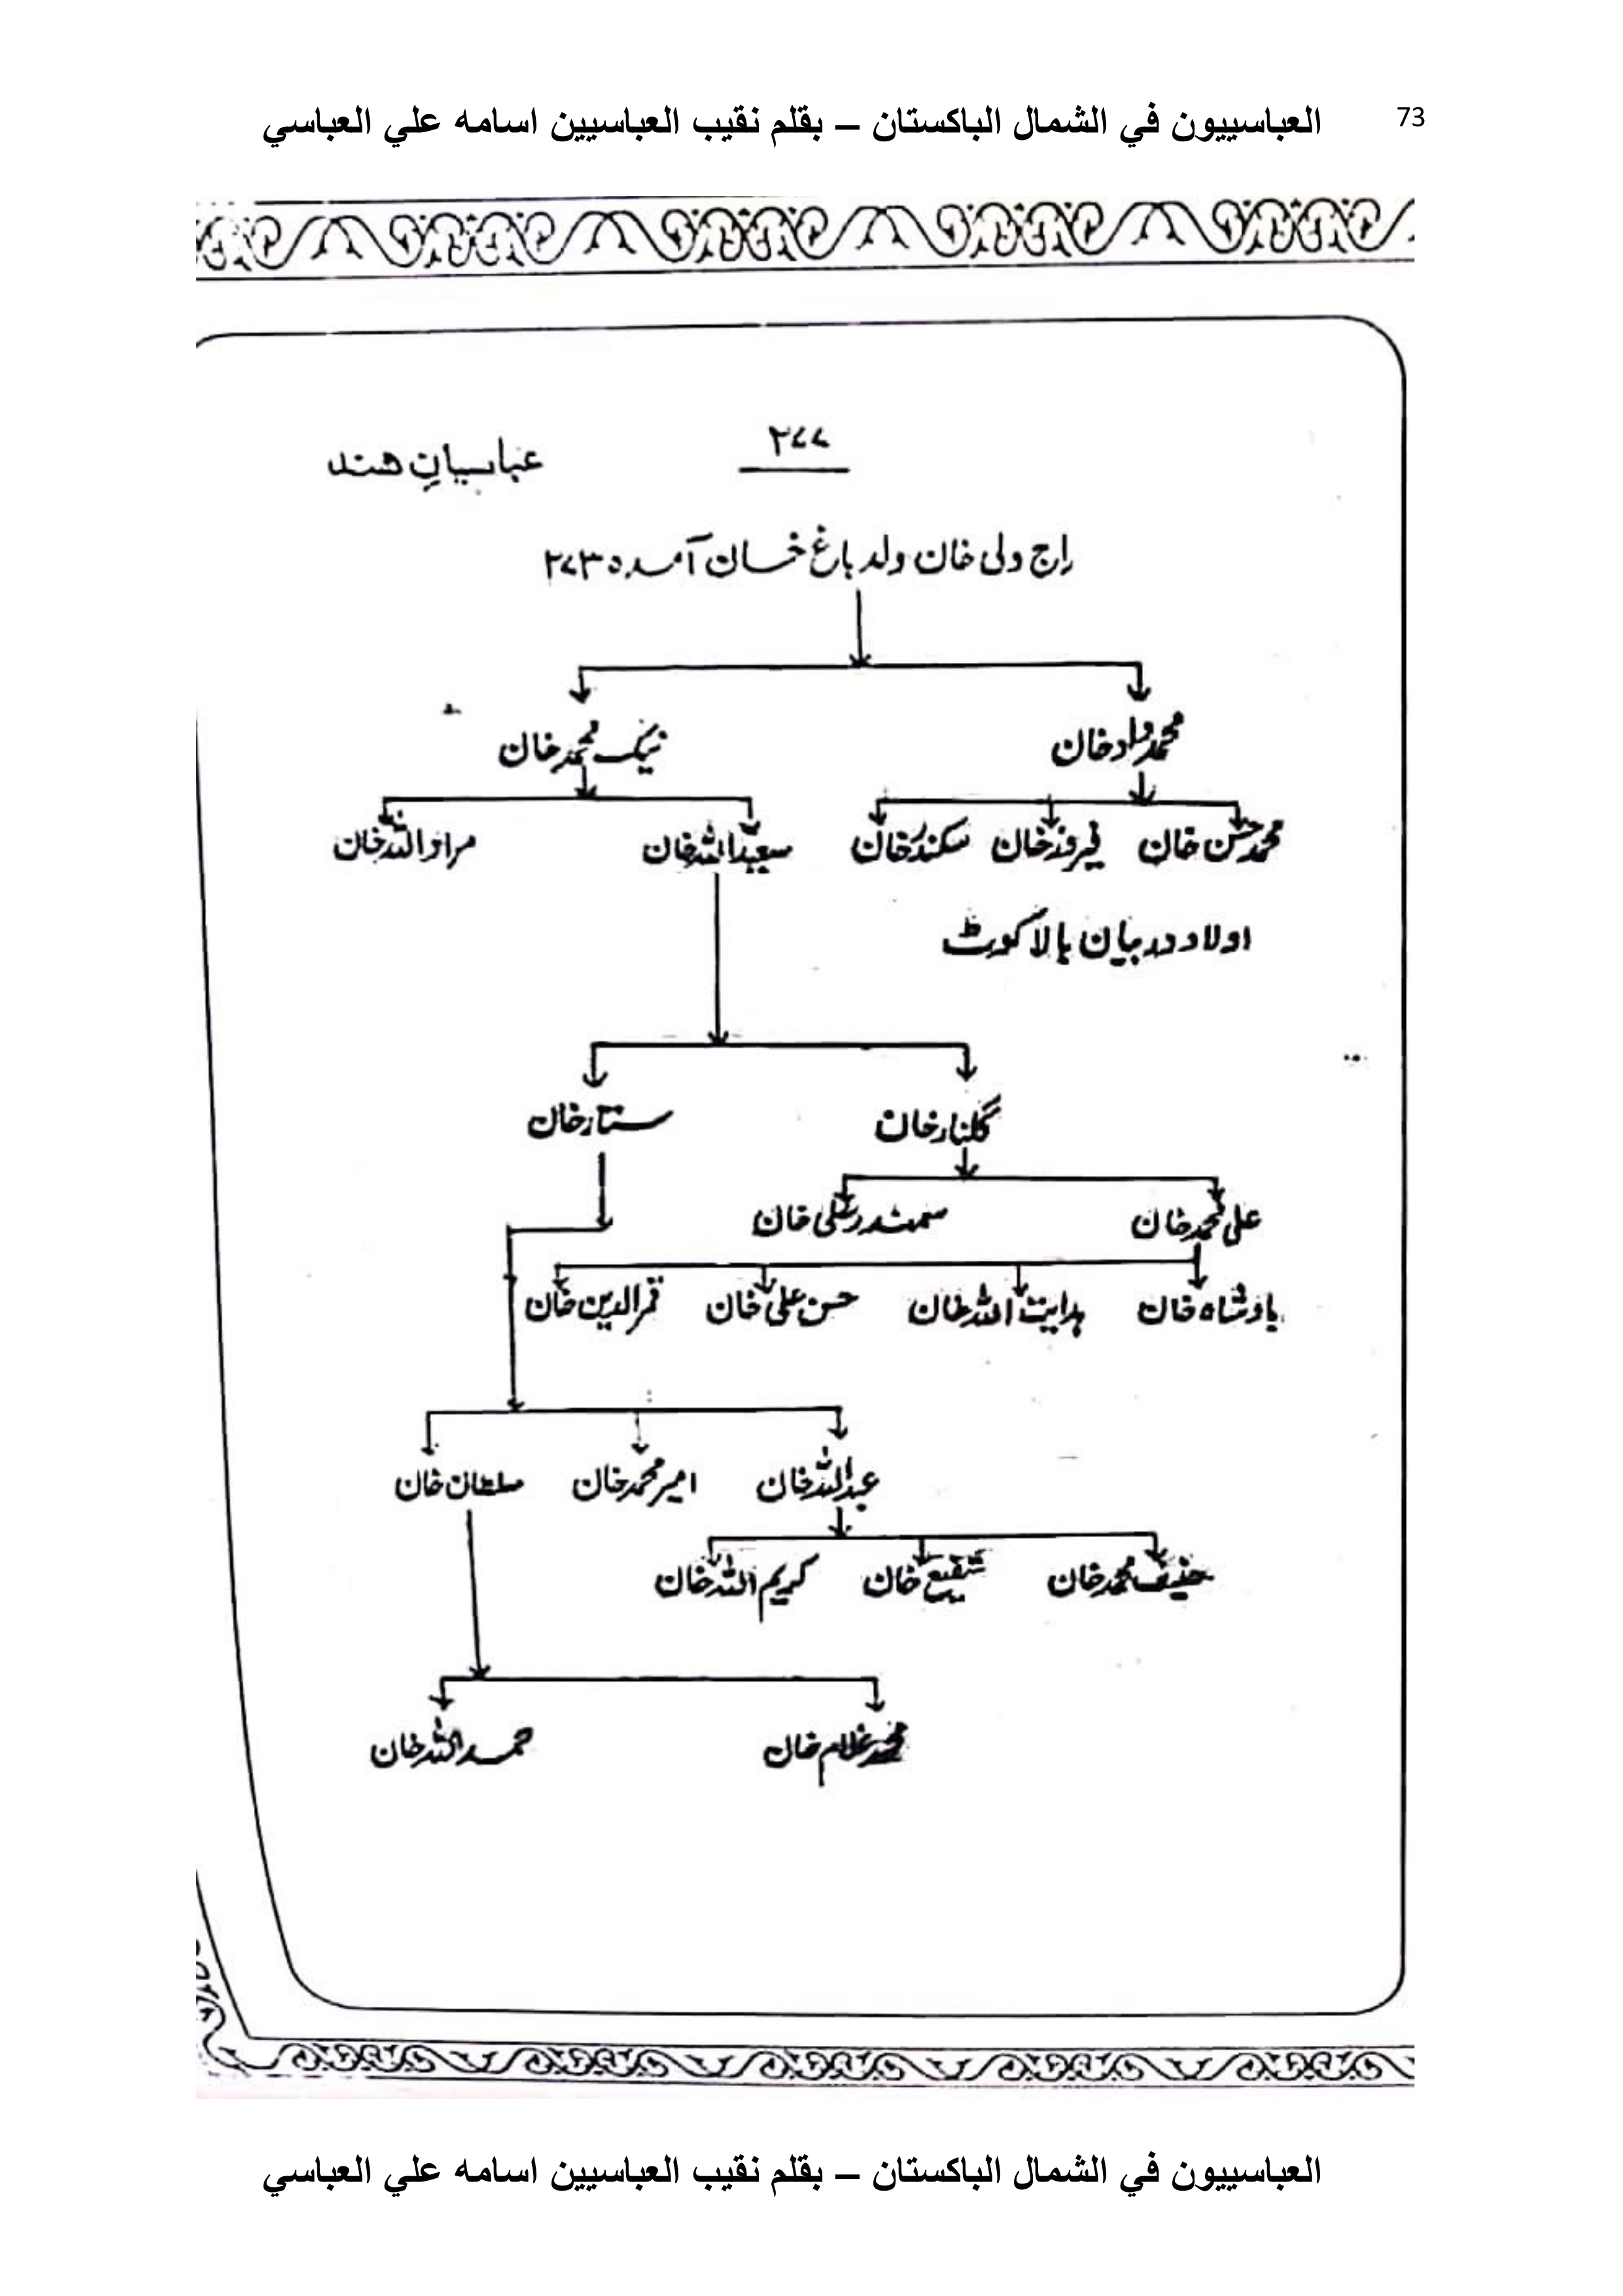 73
العباسييون في الشمال الباكستان – بقلم نقيب العباسيين اسامه علي العباسي
۲۷۷
عباسیانِ ھند
راج ولی خان ولد باغ خان آمدہ ۲۷۳
نیک محمد خان
محمد داد خان
محمد حسن خان فیروز خان سکندر خان سعیداللہ خان مراداللہ خان
اولاد در بیان بالا کوٹ
گلنار خان ستار خان
علی محمد خان سمندر علی خان
بادشاہ خان ہدایت اللہ خان حسن علی خان قمرالدین خان
عبداللہ خان امیر محمد خان سلطان خان
حنیف محمد خان شفیع خان کریم اللہ خان
محمد غلام خان حمداللہ خان
العباسييون في الشمال الباكستان – بقلم نقيب العباسيين اسامه علي العباسي